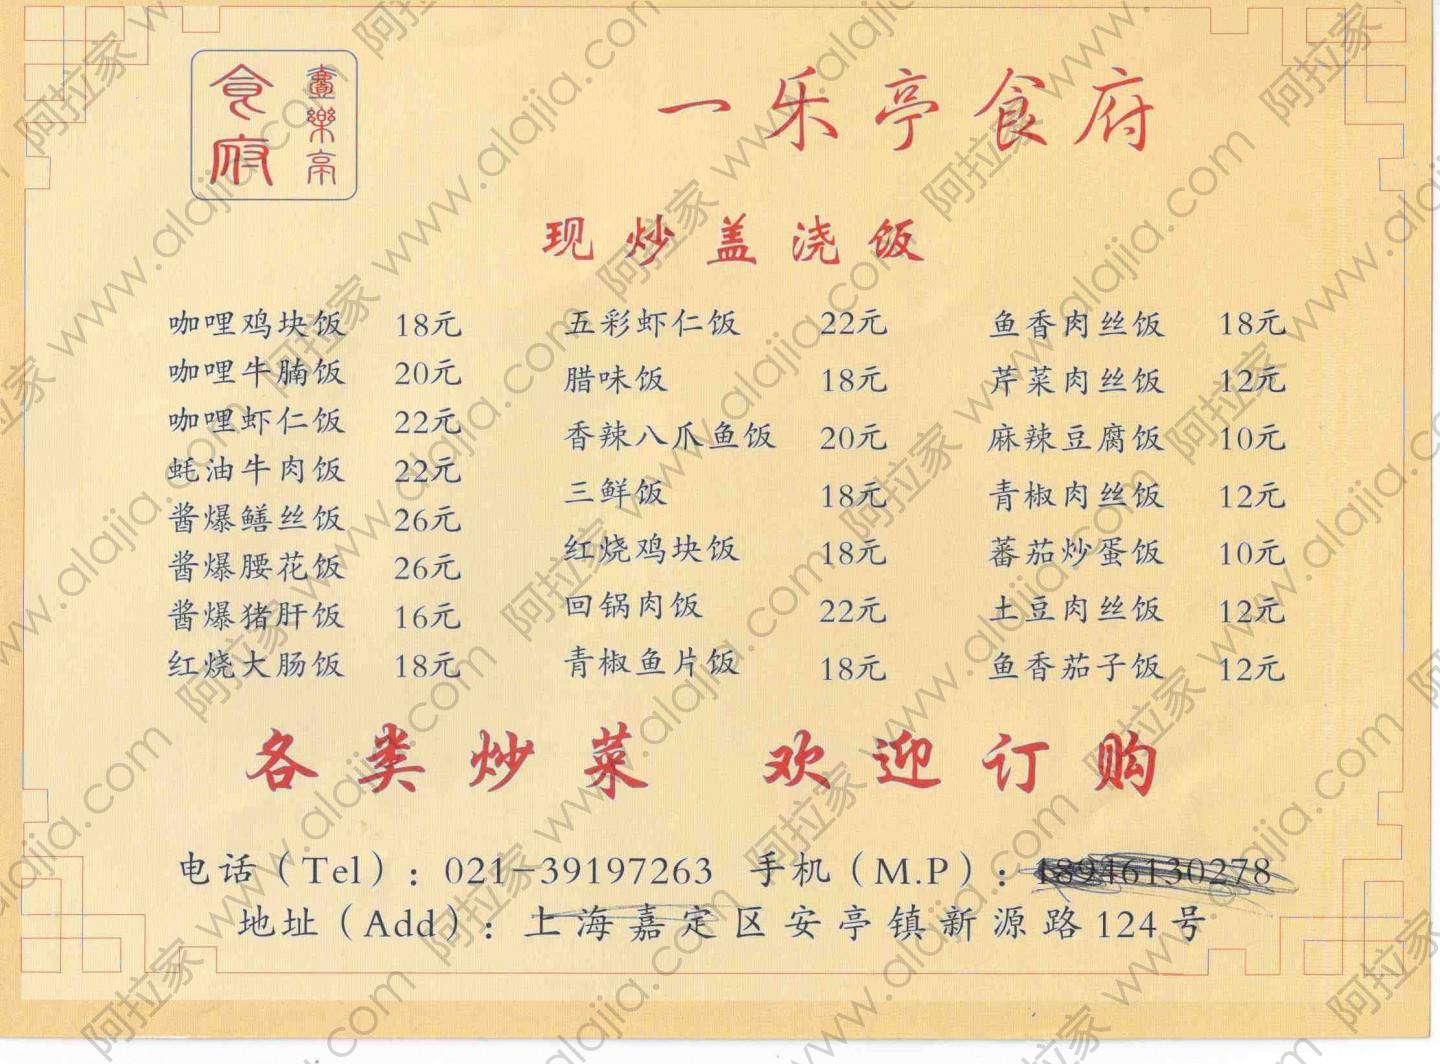 食府
壹樂亭
一乐亭食府
现炒盖浇饭
咖哩鸡块饭 18元
咖哩牛腩饭 20元
咖哩虾仁饭 22元
蚝油牛肉饭 22元
酱爆鳝丝饭 26元
酱爆腰花饭 26元
酱爆猪肝饭 16元
红烧大肠饭 18元
五彩虾仁饭 22元
腊味饭 18元
香辣八爪鱼饭 20元
三鲜饭 18元
红烧鸡块饭 18元
回锅肉饭 22元
青椒鱼片饭 18元
鱼香肉丝饭 18元
芹菜肉丝饭 12元
麻辣豆腐饭 10元
青椒肉丝饭 12元
蕃茄炒蛋饭 10元
土豆肉丝饭 12元
鱼香茄子饭 12元
各类炒菜 欢迎订购
电话（Tel）：021-39197263 手机（M.P）：
地址（Add）：上海嘉定区安亭镇新源路124号
阿拉家 www.alajia.com